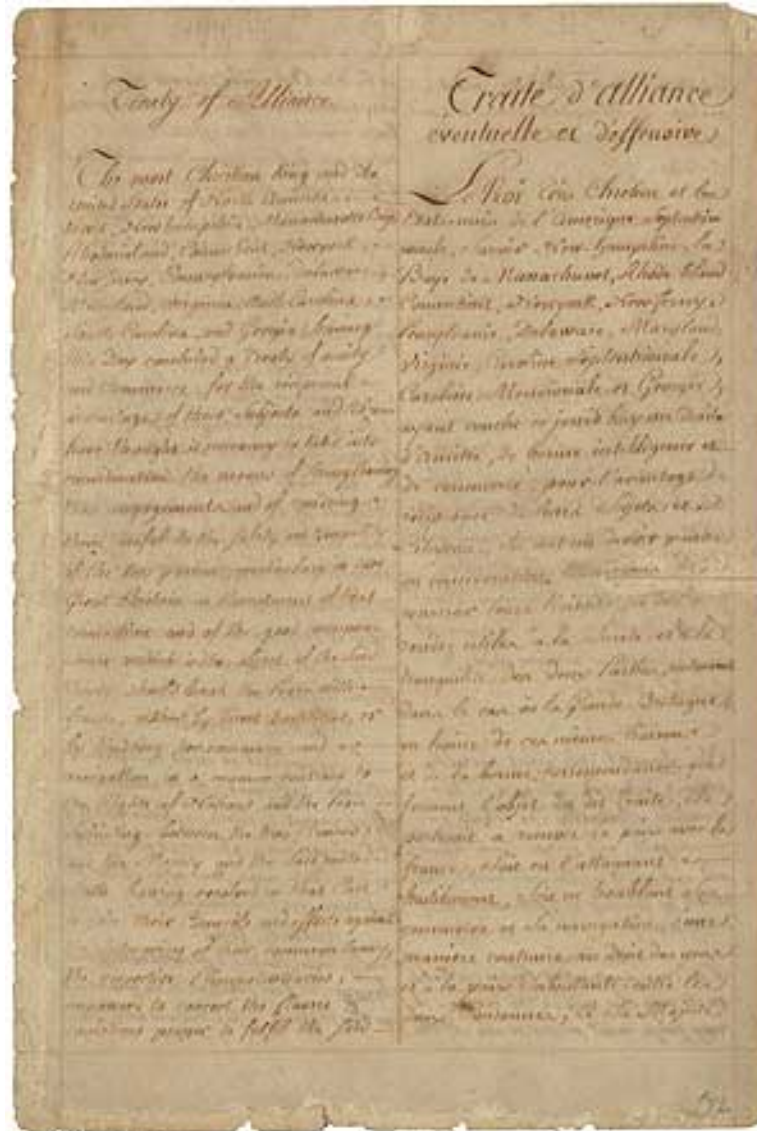 Treaty of Alliance
The most Christian King and the
United States of North America
New Hampshire, Massachusetts Bay
Rhodeisland, Connecticut, Newyork
New Jersey, Pennsylvania, Delaware
Maryland, Virginia, North Carolina
South Carolina, and Georgia, having
this Day concluded a Treaty of amity
and Commerce, for the reciprocal
advantage of their Subjects and
have thought it necessary to take into
consideration the means of strengthening
those engagements and of rendering
them useful to the safety and
of the two parties, particularly in case
Great Britain in Resentment of that
connection and of the good
which is the object of the said
Treaty, should break the Peace with
france, either by direct hostilities, or
by hindring her commerce and
navigation, in a manner contrary to
the Rights of Nations, and the Peace
subsisting between the two Crowns
and his Majesty and the said united
States having resolved in that Case
to join their Councils and efforts against
the Enterprises of their common Enemy,
the respective Plenipotentiaries,
impowered to concert the Clauses &
conditions proper to fulfil the said
Traité d'alliance
eventuelle et deffensive
Le Roi très Chretien et les
Etats unis de l'Amerique Septentrio
nale, savoir New hampshire, la
Baye de Massachuset, Rhode island
Connecticut, Newyork, New Jersey
Pensylvanie, Delaware, Maryland
Virginie, Caroline Septentrionale,
Caroline Meridionale et Georgie,
ayant conclu ce jourd'huy un traité
d'amitié, de bonne intelligence et
de commerce, pour l'avantage
réciproque de leurs Sujets et
Citoyens, ils ont cru devoir prendre
en consideration les moyens de
resserrer leurs liaisons, et de les
rendre utiles à la Sureté et à la
tranquilité des deux Parties, notamment
dans le cas où la Grande Bretagne
en haine de ces mêmes liaisons
et de la bonne correspondance qui
forment l'objet du dit Traité, se
porteroit à rompre la paix avec la
france, soit en l'attaquant
hostilement, soit en troublant son
commerce et sa navigation, d'une
manière contraire au droit des gens
et à la paix subsistante entre les
deux Couronnes, Et Sa Majesté